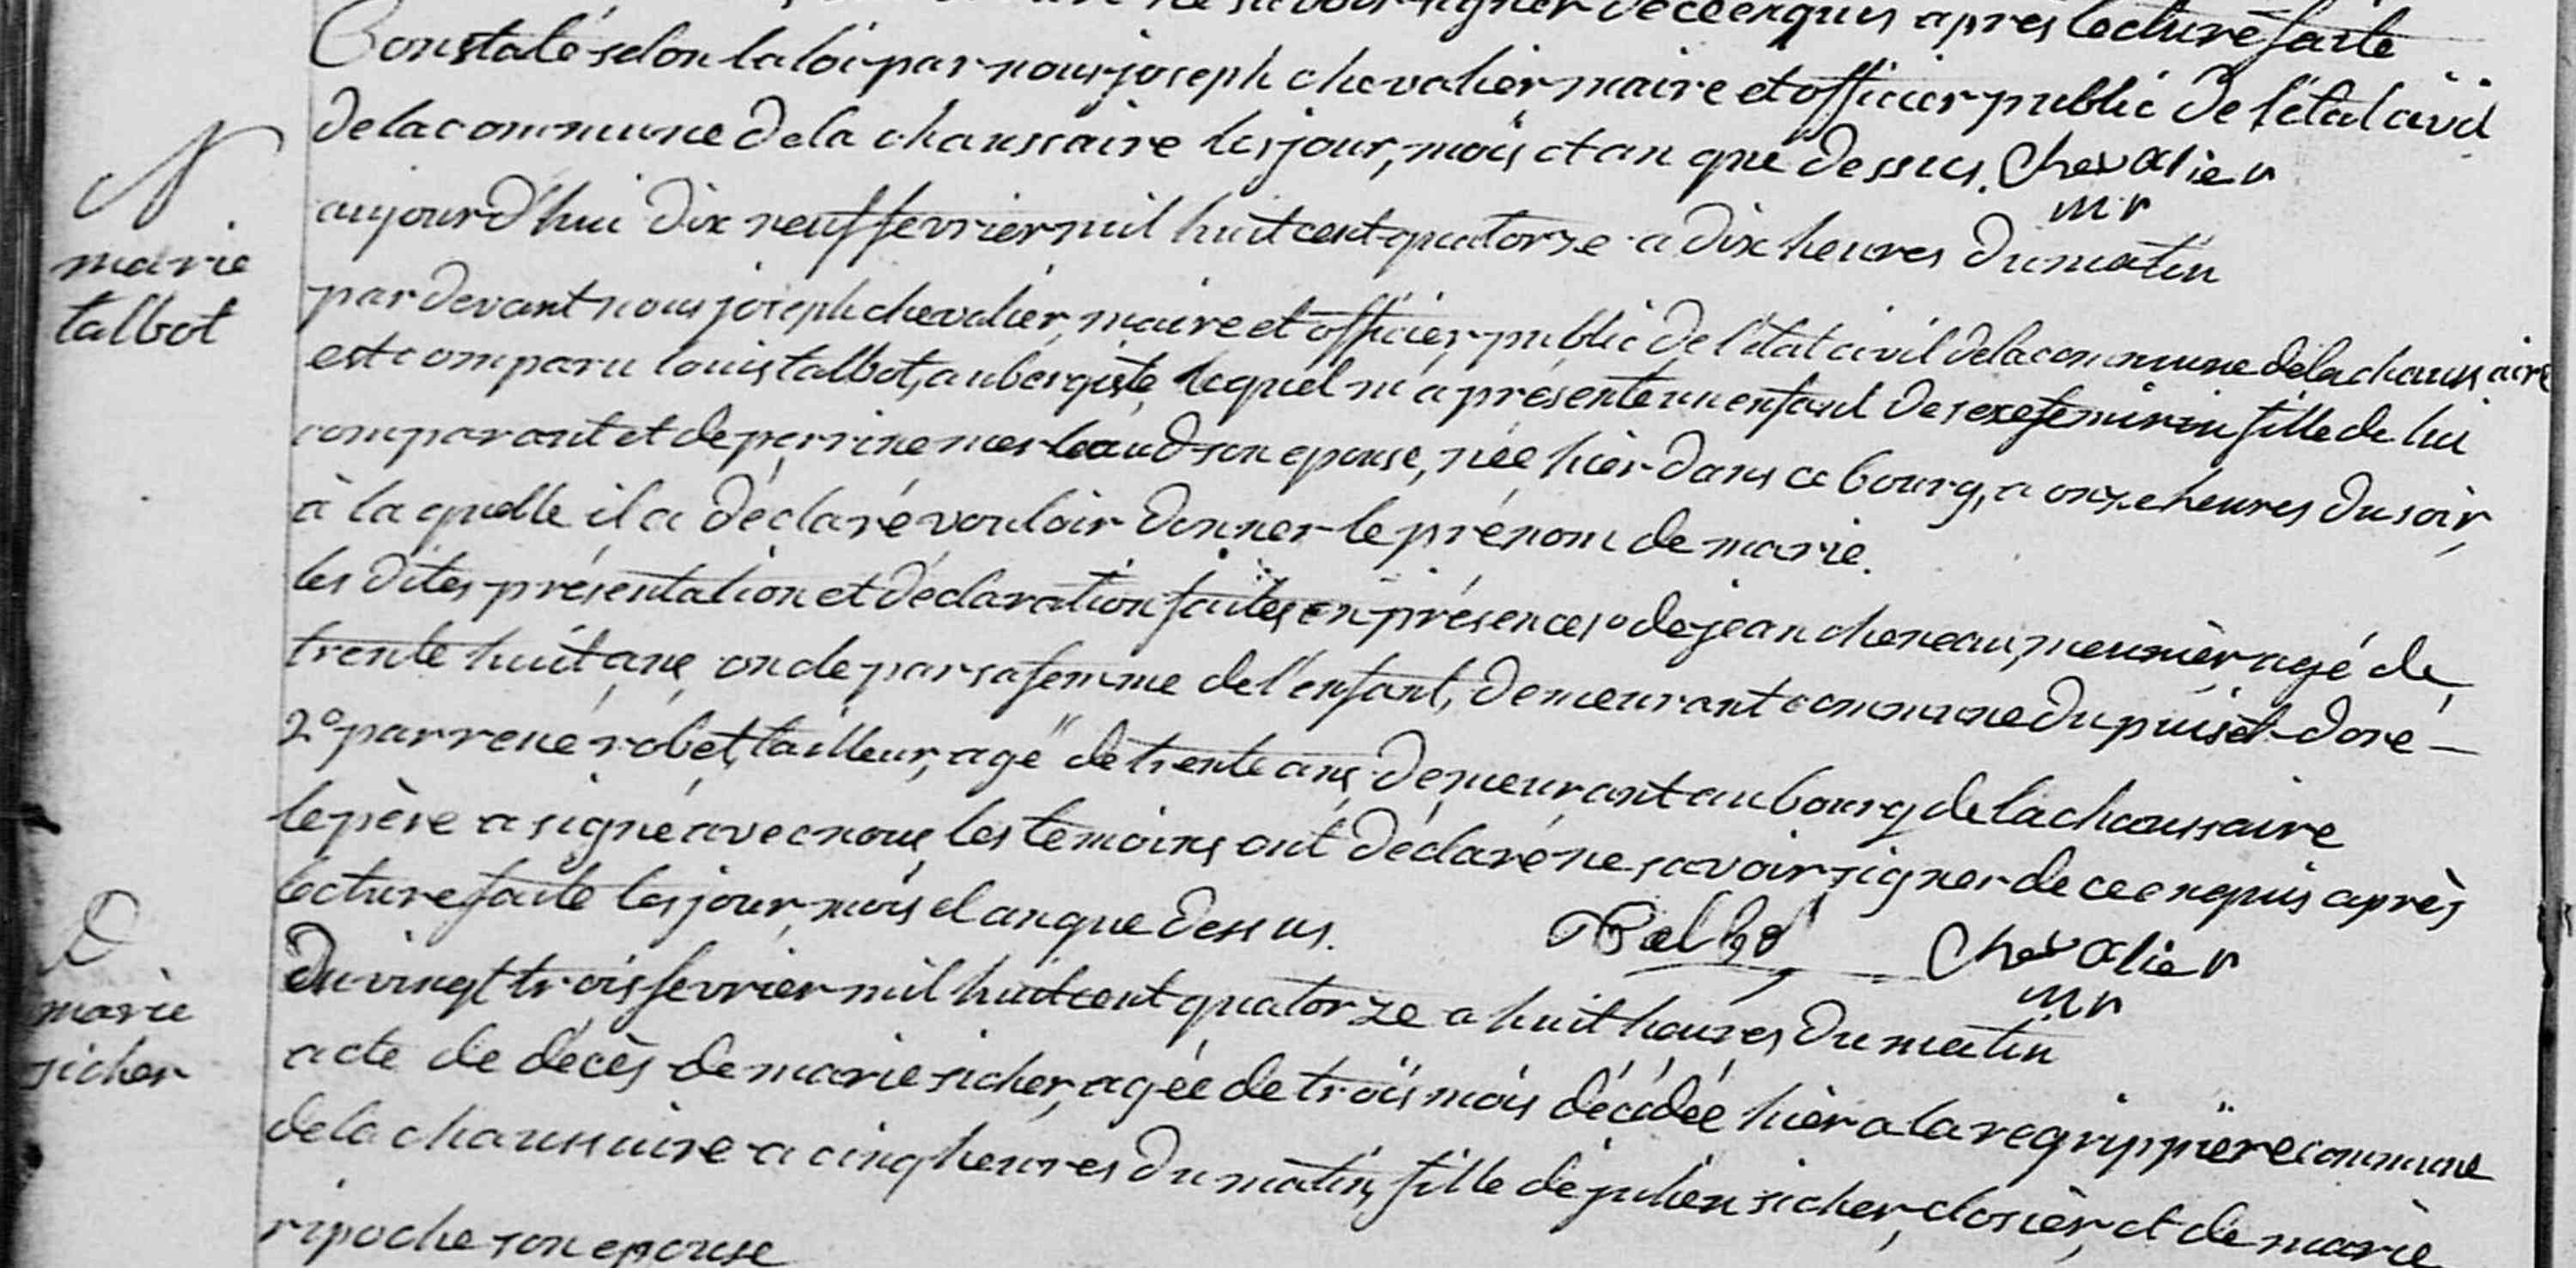 signer de ce enquis après lecture faite
Constaté selon la loi par nous joseph chevalier maire et officier public de l'état civil
de la commune de la chaussaire les jour, mois et an que dessus. Chevalier
mr
N
marie
talbot
aujourd'hui dix neuf fevrier mil huit cent quatorze a dix heures du matin
par devant nous joseph chevalier, maire et officier public de l'état civil de la commune de la chaussaire
est comparu louis talbot, aubergiste, lequel m'a présenté un enfant de sexe feminin fille de lui
comparant et de perrine merlaud son epouse, née hier dans ce bourg, a onze heures du soir,
à la quelle il a déclaré vouloir donner le prénom de marie.
les dites présentation et déclaration faites en présence 1o de jean cheneau, meunièr agé de
trente huit ans, oncle par sa femme de l'enfant, demeurant commune du puiset-doré —
2o par rené robet, tailleur, agé de trente ans demeurant au bourg de la chaussaire
le père a signé avec nous, les temoins ont déclaré ne savoir signer de ce enquis après
lecture faite les jour, mois et an que dessus. Talbot Chevalier
mr
D
marie
sicher
Du vingt trois fevrier mil huit cent quatorze a huit heures du matin
acte de décès de marie sicher, agée de trois mois décédée hièr a la regrippière commune
de la chaussaire a cinq heures du matin, fille de julien sicher, closièr, et de marie
ripoche son epouse